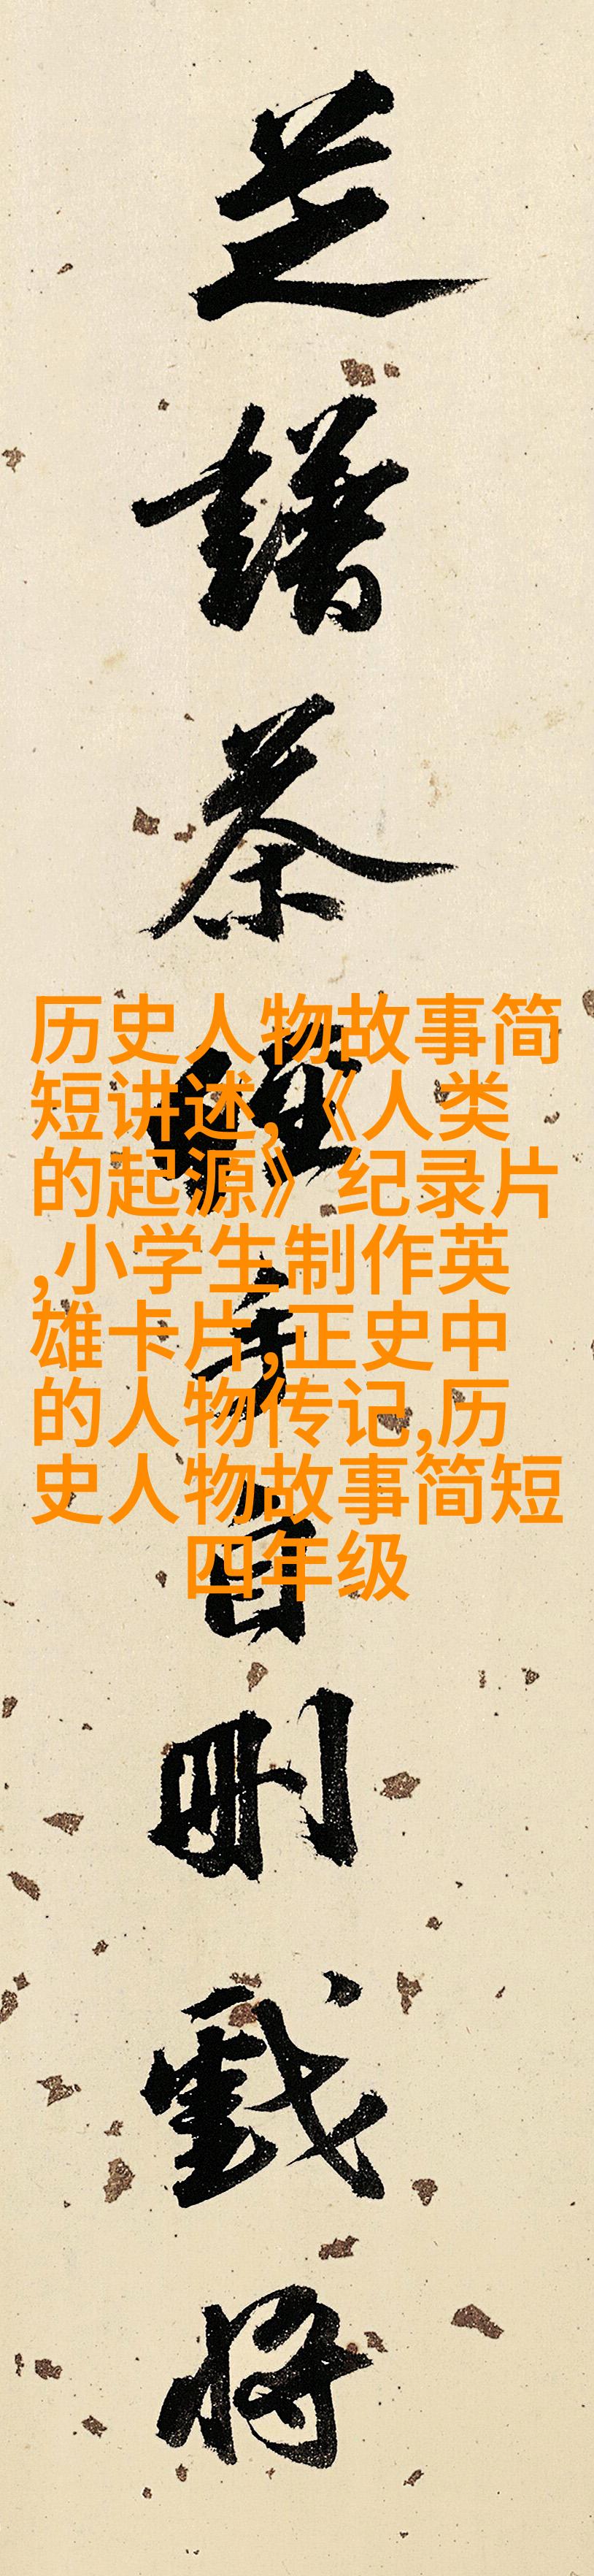 芝譜茶經手自刪戲將
历史人物故事简
短讲述,《人类
的起源》纪录片
,小学生制作英
雄卡片,正史中
的人物传记,历
史人物故事简短
四年级